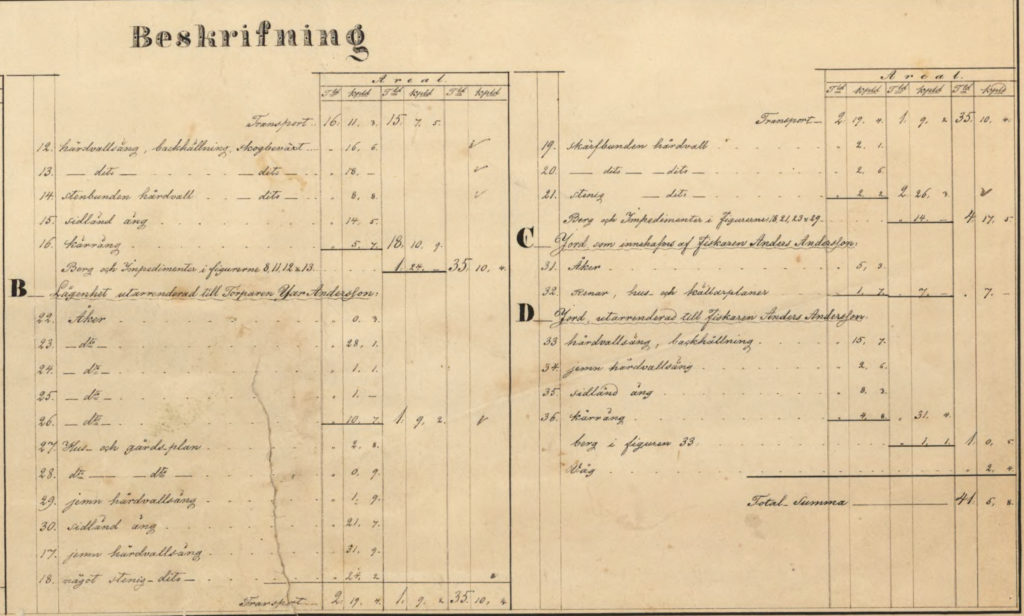 Beskrifning
Areal
Tld kpld Tld kpld Tld kpld
Transport 16 11. 3. 15. 7. 5.
12. hårdvallsäng, backhällning, skogbeväxt 16. 6.
13. — dito — — dito — 18. —
14. stenbunden hårdvall — dito — 8. 8.
15. sidländ äng 14. 5.
16. kärräng 5. 7. 18. 10. 9.
Berg och Impedimenter i figurerne 8, 11, 12 & 13. 1. 24. — 35. 10. 4.
B Lägenhet utarrenderad till Torparen Andersson:
22. Åker 0. 3.
23. — dto — 28. 1.
24. — dto — 1. 1.
25. — dto — 1. —
26. — dto — 10. 7. 1. 9. 2.
27. Hus- och gårdsplan 2. 8.
28. dto — — dto — 0. 9.
29. jemn hårdvallsäng 1. 9.
30. sidländ äng 21. 7.
17. jemn hårdvallsäng 31. 9.
18. något stenig — dito — 24. 2.
Transport 2. 19. 4. 1. 9. 2. 35. 10. 4.
Areal.
Tld kpld Tld kpld Tld kpld
Transport 2. 19. 4. 1. 9. 2. 35. 10. 4.
19. skärfbunden hårdvall 2. 1.
20. — dito — — dito — 2. 6.
21. stenig — dito — 2. 2. 2. 26. 3.
Berg och Impedimenter i figurerne 18, 21, 23 & 29. 14. — 4. 17. 5.
C Jord som innehafves af fiskaren Anders Andersson:
31. Åker 5. 3.
32. Renar, hus- och källarplaner 1. 7. 7. — 7. —
D Jord, utarrenderad till fiskaren Anders Andersson.
33 hårdvallsäng, backhällning 15. 7.
34. jemn hårdvallsäng 2. 6.
35. sidländ äng 8. 3.
36. kärräng 4. 8. 31. 4.
berg i figuren 33. 1. 1. 1. 0.
Väg 2. 4.
Total-Summa 41. 5. 8.